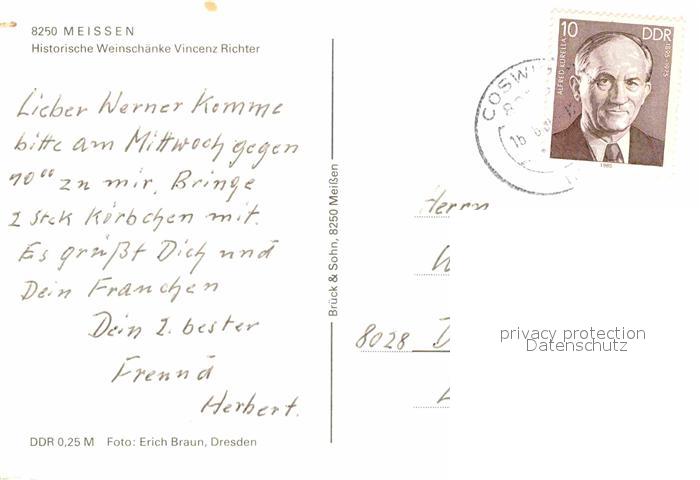 8250 MEISSEN
Historische Weinschänke Vincenz Richter
Lieber Werner Komme
bitte am Mittwoch gegen
10⁰⁰ zu mir. Bringe
2 Stck Körbchen mit.
Es grüßt Dich und
Dein Frauchen
Dein 2. bester
Freund
Herbert.
DDR 0,25 M Foto: Erich Braun, Dresden
Brück & Sohn, 8250 Meißen
10 DDR
ALFRED KURELLA
1895-1975
1985
COSW
Herrn
W
8028 D
privacy protection
Datenschutz